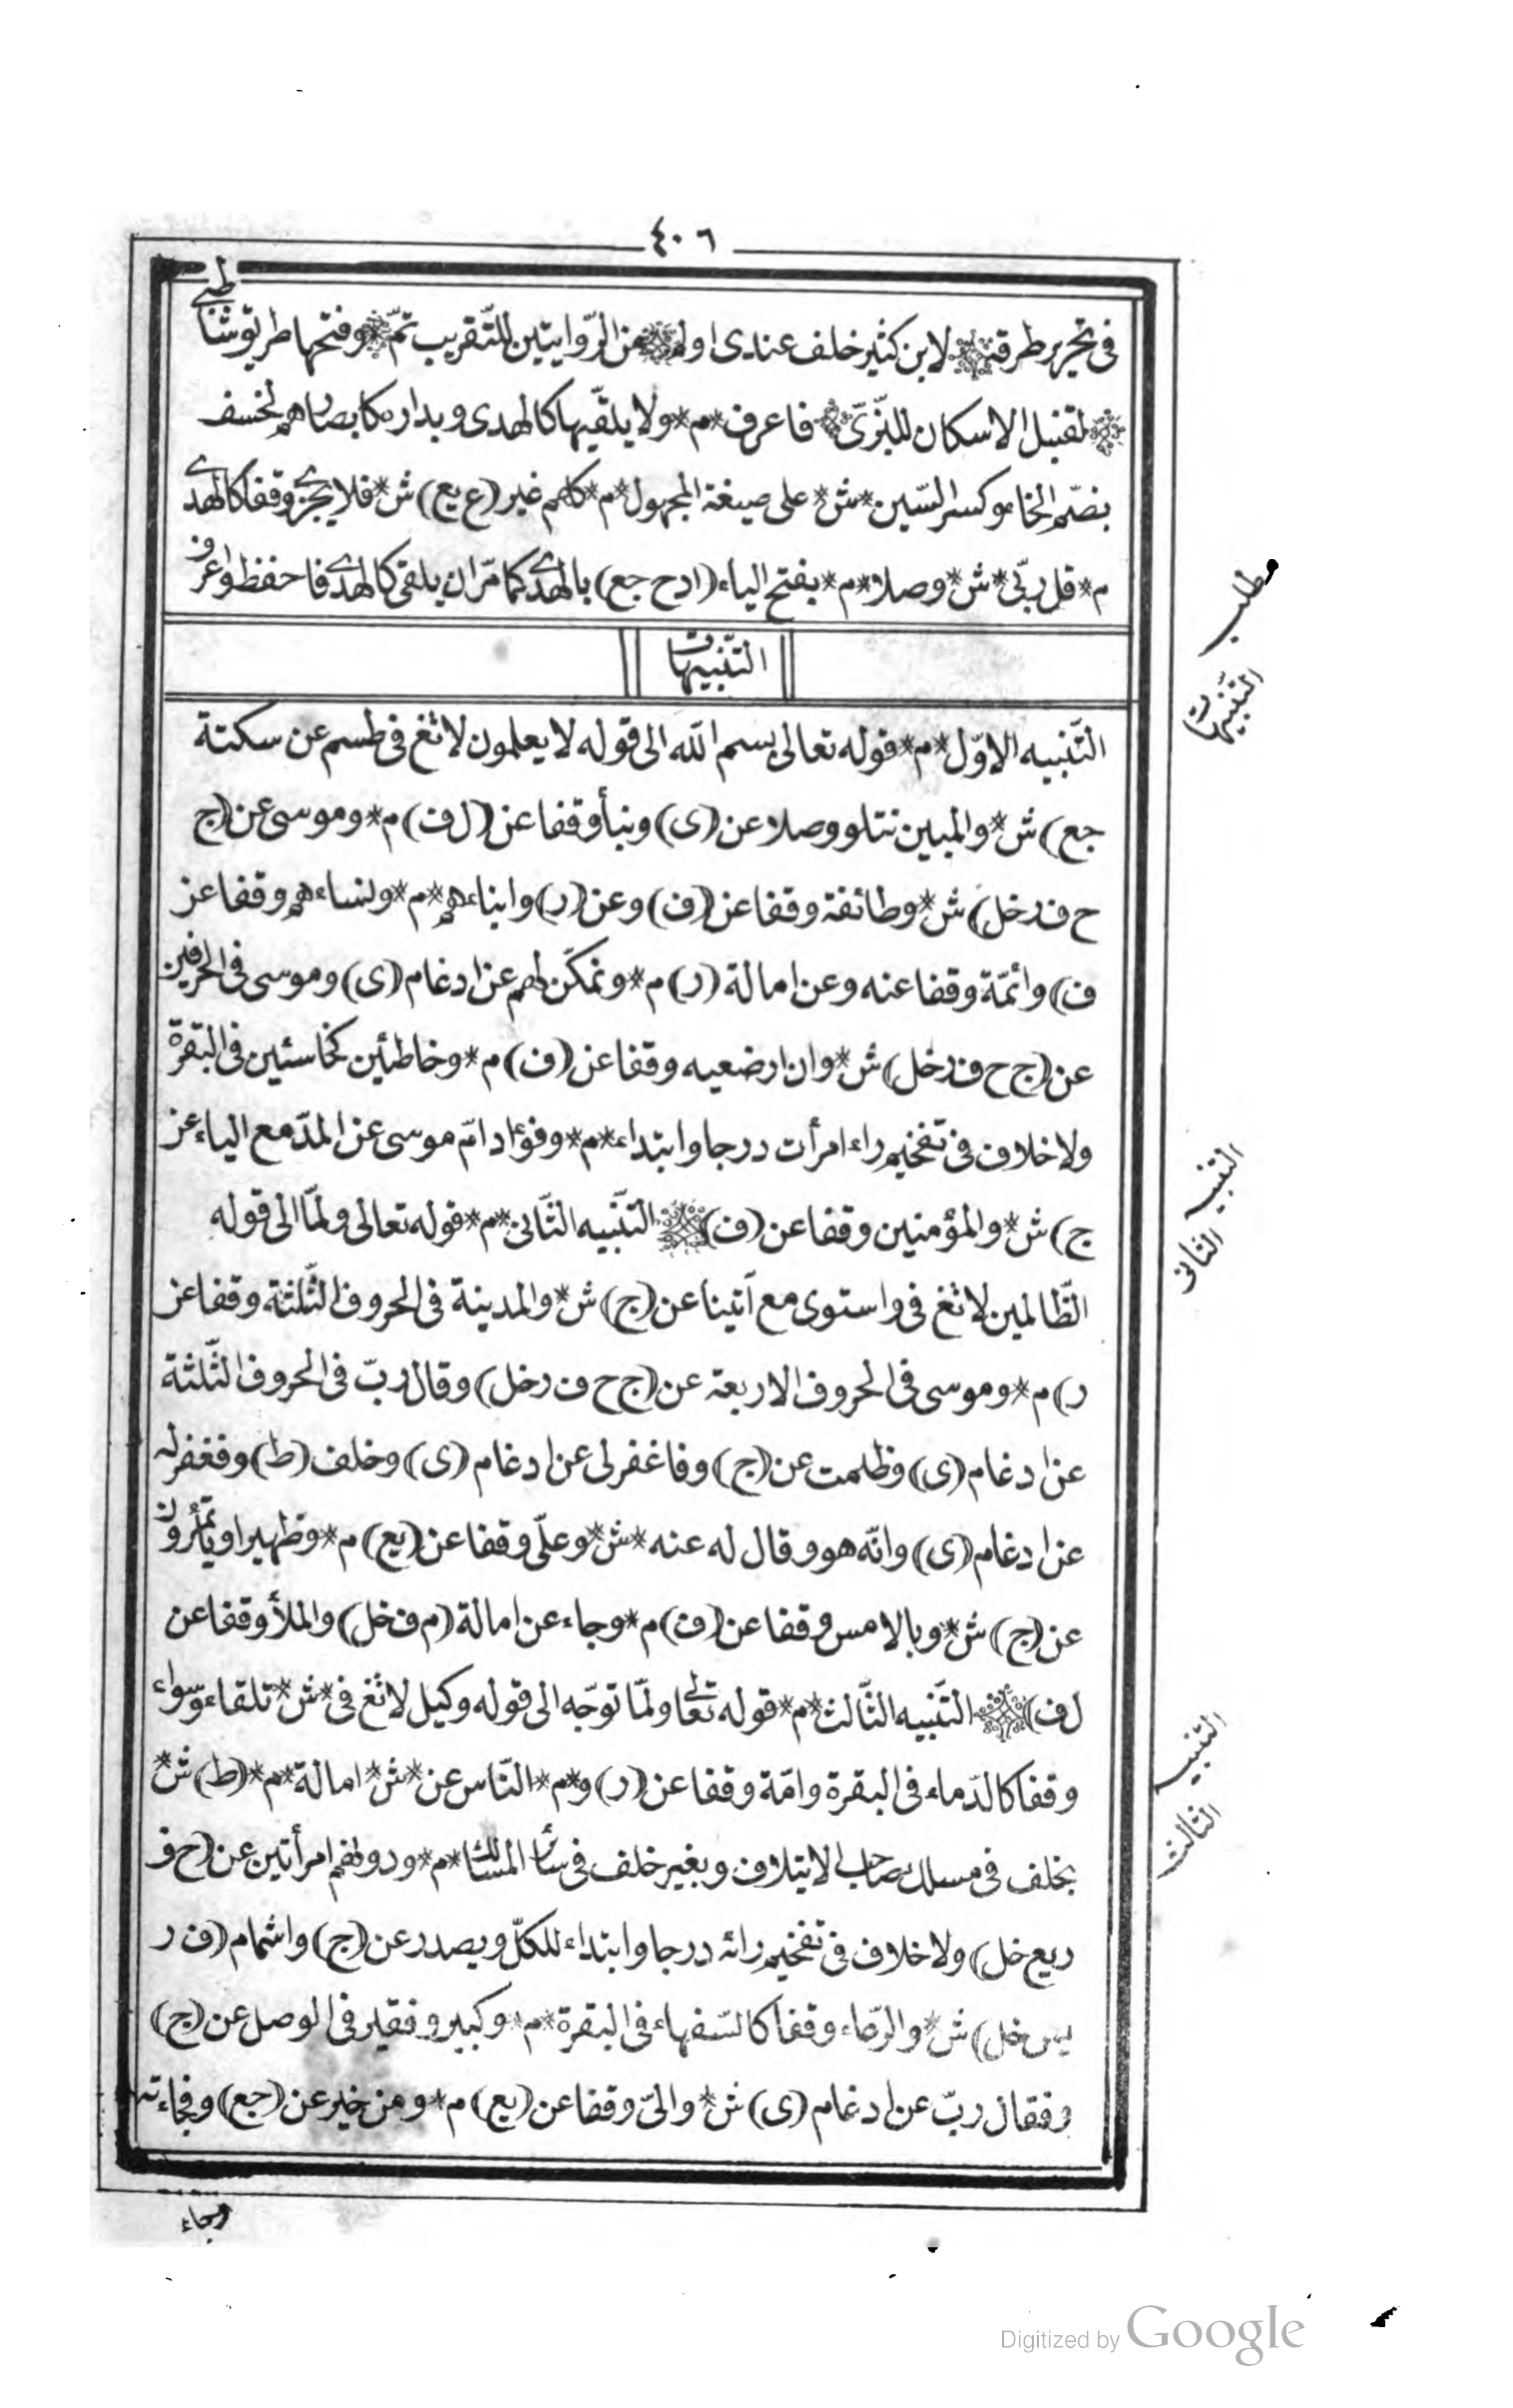 ٤٠٦
فى تحرير طرقه لابن كثير خلف عندى اولم من الرّوايتين للتّقريب تمّ وفتحها طريق شاطبى
لقنبل الاسكان للبزّىّ فاعرف *م* ولا يلقّيها كالهدى وبداره كابصارهم لخسف
بضمّ الخاء وكسر السّين *ش* على صيغة المجهول *م* كلهم غير (ع يع) ش* فلا يجزى وقفا كالهدى
م* قل ربّى *ش* وصلا *م* بفتح الياء (ا د ح جع) بالهدى كما مرّ ان يلقى كالهدى فاحفظ واعرف
التّنبيهات
التّنبيه الاوّل *م* قوله تعالى بسم الله الى قوله لا يعلمون لا تغ فى طسم عن سكتة
جع) ش* والمبين نتلو وصلا عن (ى) ونبأ وقفا عن (ل ف) م* وموسى عن (ج
ح ف ر خل) ش* وطائفة وقفا عن (ف) وعن (ر) وابناءهم *م* ونساءهم وقفا عن
ف) وائمّة وقفا عنه وعن امالة (ر) م* ونمكّن لهم عن ادغام (ى) وموسى فى الحرفين
عن (ج ح ف ر خل) ش* وان ارضعيه وقفا عن (ف) م* وخاطئين كخاسئين فى البقرة
ولا خلاف فى تفخيم راء امرأت درجا وابتداء *م* وفؤاد امّ موسى عن المدّ مع الياء عن
ج) ش* والمؤمنين وقفا عن (ف) التّنبيه الثّانى *م* قوله تعالى ولمّا الى قوله
الظّالمين لا تغ فى واستوى مع آتينا عن (ج) ش* والمدينة فى الحروف الثّلثة وقفا عن
ر) م* وموسى فى الحروف الاربعة عن (ج ح ف ر خل) وقال ربّ فى الحروف الثّلثة
عن ادغام (ى) وظلمت عن (ج) وفاغفر لى عن ادغام (ى) وخلف (ط) وفغفر له
عن ادغام (ى) وانّه هو وقال له عنه *ش* وعلىّ وقفا عن (يع) م* وظهيرا ويأتمرون
عن (ج) ش* وبالامس وقفا عن (ف) م* وجاء عن امالة (م ف خل) والملأ وقفا عن
ل ف) التّنبيه الثّالث *م* قوله تعالى ولمّا توجّه الى قوله وكيل لا تغ فى *ش* تلقاء وسواء
وقفا كالدّماء فى البقرة وامّة وقفا عن (ر) و*م* النّاس عن *ش* امالة *م* (ط) ش*
بخلف فى مسلك صاحب الايتلاف وبغير خلف فى سائر المسالك *م* ودونهم امرأتين عن (ح ف
ر يع خل) ولا خلاف فى تفخيم رائه درجا وابتداء للكلّ ويصدر عن (ج) واشمام (ف ر
يس خل) ش* والرّعاء وقفا كالسّفهاء فى البقرة *م* وكبير وفقير فى الوصل عن (ج)
وفقال ربّ عن ادغام (ى) ش* والىّ وقفا عن (يع) م* ومن خير عن (جع) وفجاءته
وجاء
مطلب
التّنبيهات
التّنبيه
الثّانى
التّنبيه
الثّالث
Digitized by Google